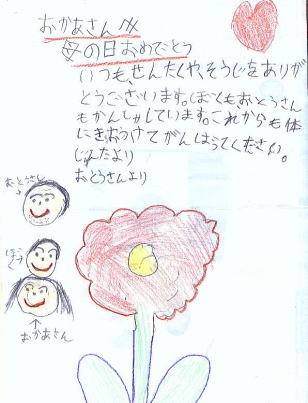 おかあさんへ
母の日おめでとう
いつも、せんたくや、そうじをありが
とうございます。ぼくもおとうさん
もかんしゃしています。これからも体
にきおつけてがんばってください。
じゅたより
おとうさんより
おとうさん
ぼく
おかあさん